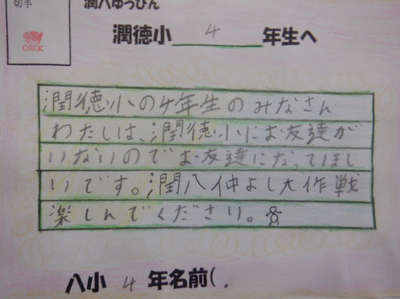 切手
潤八ゆうびん
COOK
潤徳小 4 年生へ
潤徳小の4年生のみなさん
わたしは、潤徳小にお友達が
いないのでお友達になってほし
いです。潤八仲よし大作戦
楽しんでください。
八小 4 年名前(.